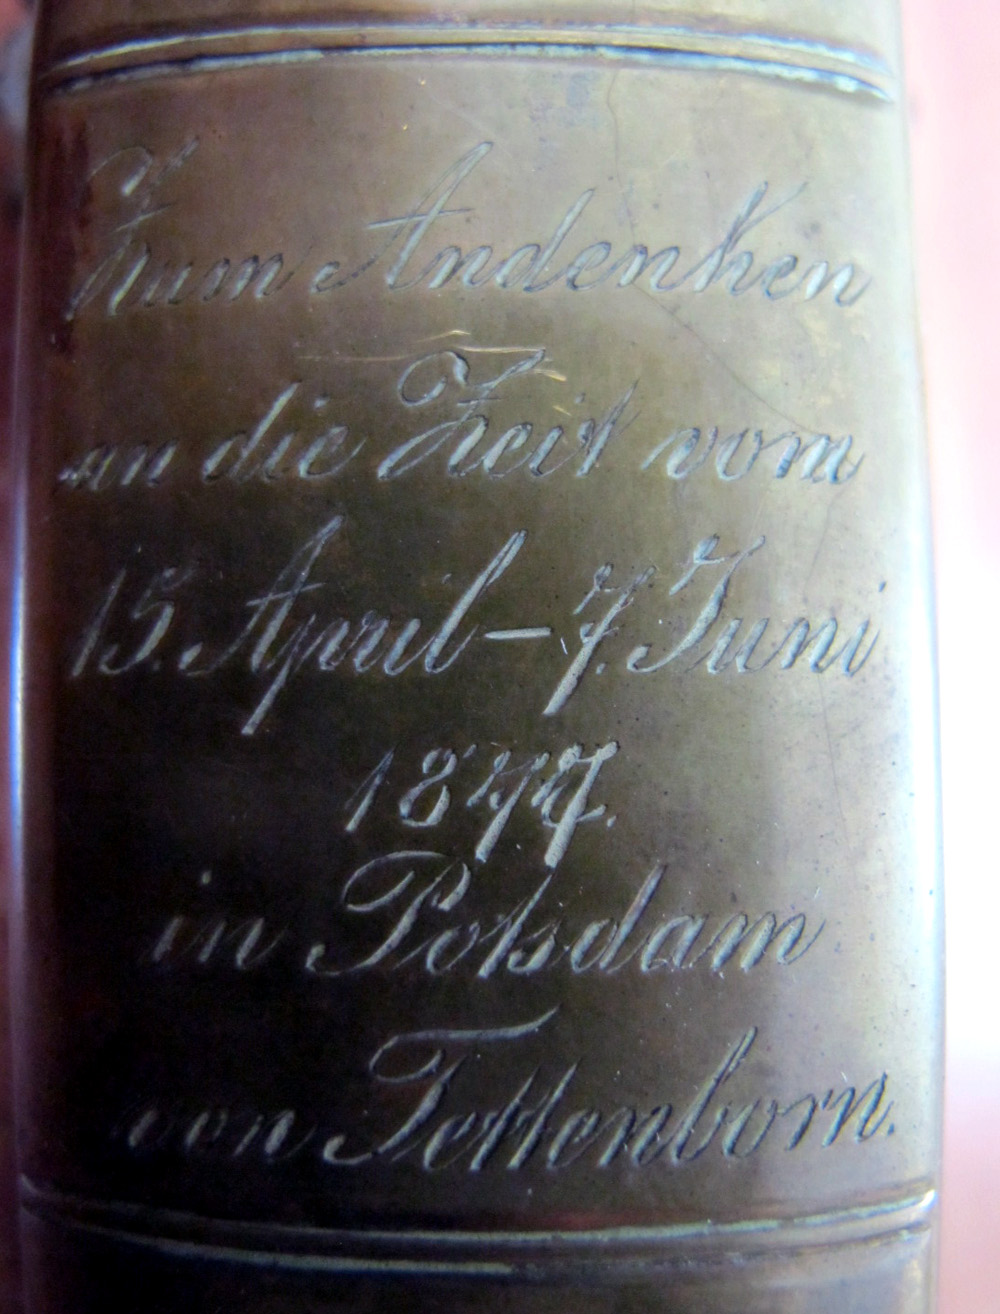 Zum Andenken
an die Zeit vom
15. April – 7. Juni
1877.
in Potsdam
von Tettenborn.